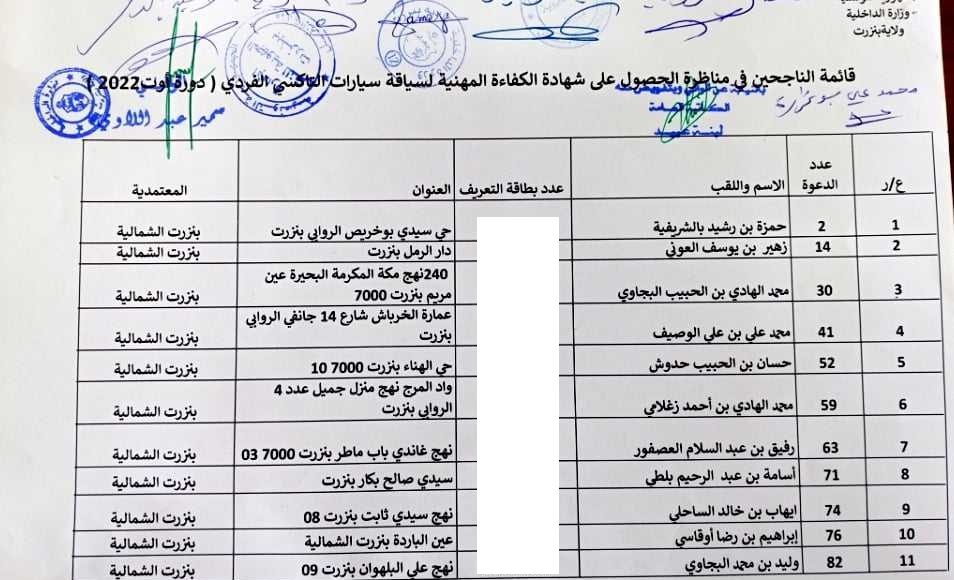 - وزارة الداخلية
ولاية بنزرت
قائمة الناجحين في مناظرة الحصول على شهادة الكفاءة المهنية لسياقة سيارات التاكسي الفردي ( دورة أوت 2022 )
محمد علي
سمير عبد اللاوي
ع/ر | عدد الدعوة | الاسم واللقب | عدد بطاقة التعريف | العنوان | المعتمدية
1 | 2 | حمزة بن رشيد بالشريفية | حي سيدي بوخريص الروابي بنزرت | بنزرت الشمالية
2 | 14 | زهير بن يوسف العوني | دار الرمل بنزرت | بنزرت الشمالية
3 | 30 | محمد الهادي بن الحبيب البجاوي | 240نهج مكة المكرمة البحيرة عين مريم بنزرت 7000 | بنزرت الشمالية
4 | 41 | محمد علي بن علي الوصيف | عمارة الخرباش شارع 14 جانفي الروابي بنزرت | بنزرت الشمالية
5 | 52 | حسان بن الحبيب حدوش | حي الهناء بنزرت 7000 10 | بنزرت الشمالية
6 | 59 | محمد الهادي بن أحمد زغلامي | واد المرج نهج منزل جميل عدد 4 الروابي بنزرت | بنزرت الشمالية
7 | 63 | رفيق بن عبد السلام العصفور | نهج غاندي باب ماطر بنزرت 7000 03 | بنزرت الشمالية
8 | 71 | أسامة بن عبد الرحيم بلطي | سيدي صالح بكار بنزرت | بنزرت الشمالية
9 | 74 | ايهاب بن خالد الساحلي | نهج سيدي ثابت بنزرت 08 | بنزرت الشمالية
10 | 76 | إبراهيم بن رضا أوقاسي | عين الباردة بنزرت الشمالية | بنزرت الشمالية
11 | 82 | وليد بن محمد البجاوي | نهج علي البلهوان بنزرت 09 | بنزرت الشمالية